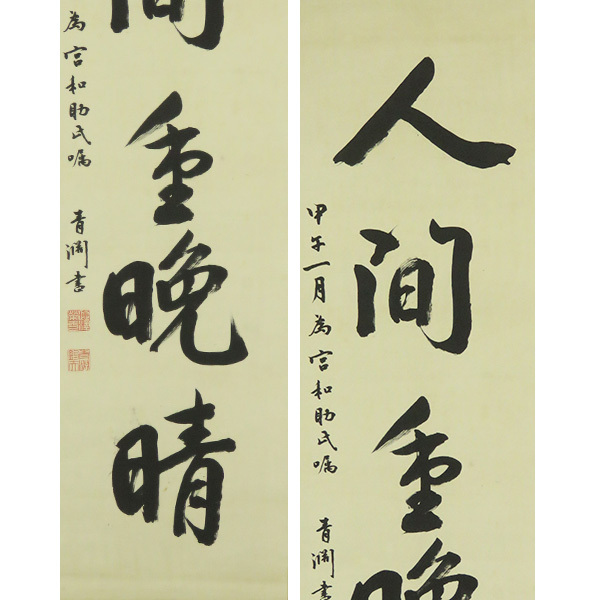 人間重晩
甲午一月為宮和助氏嘱 青淵書
間重晩晴
為宮和助氏嘱 青淵書